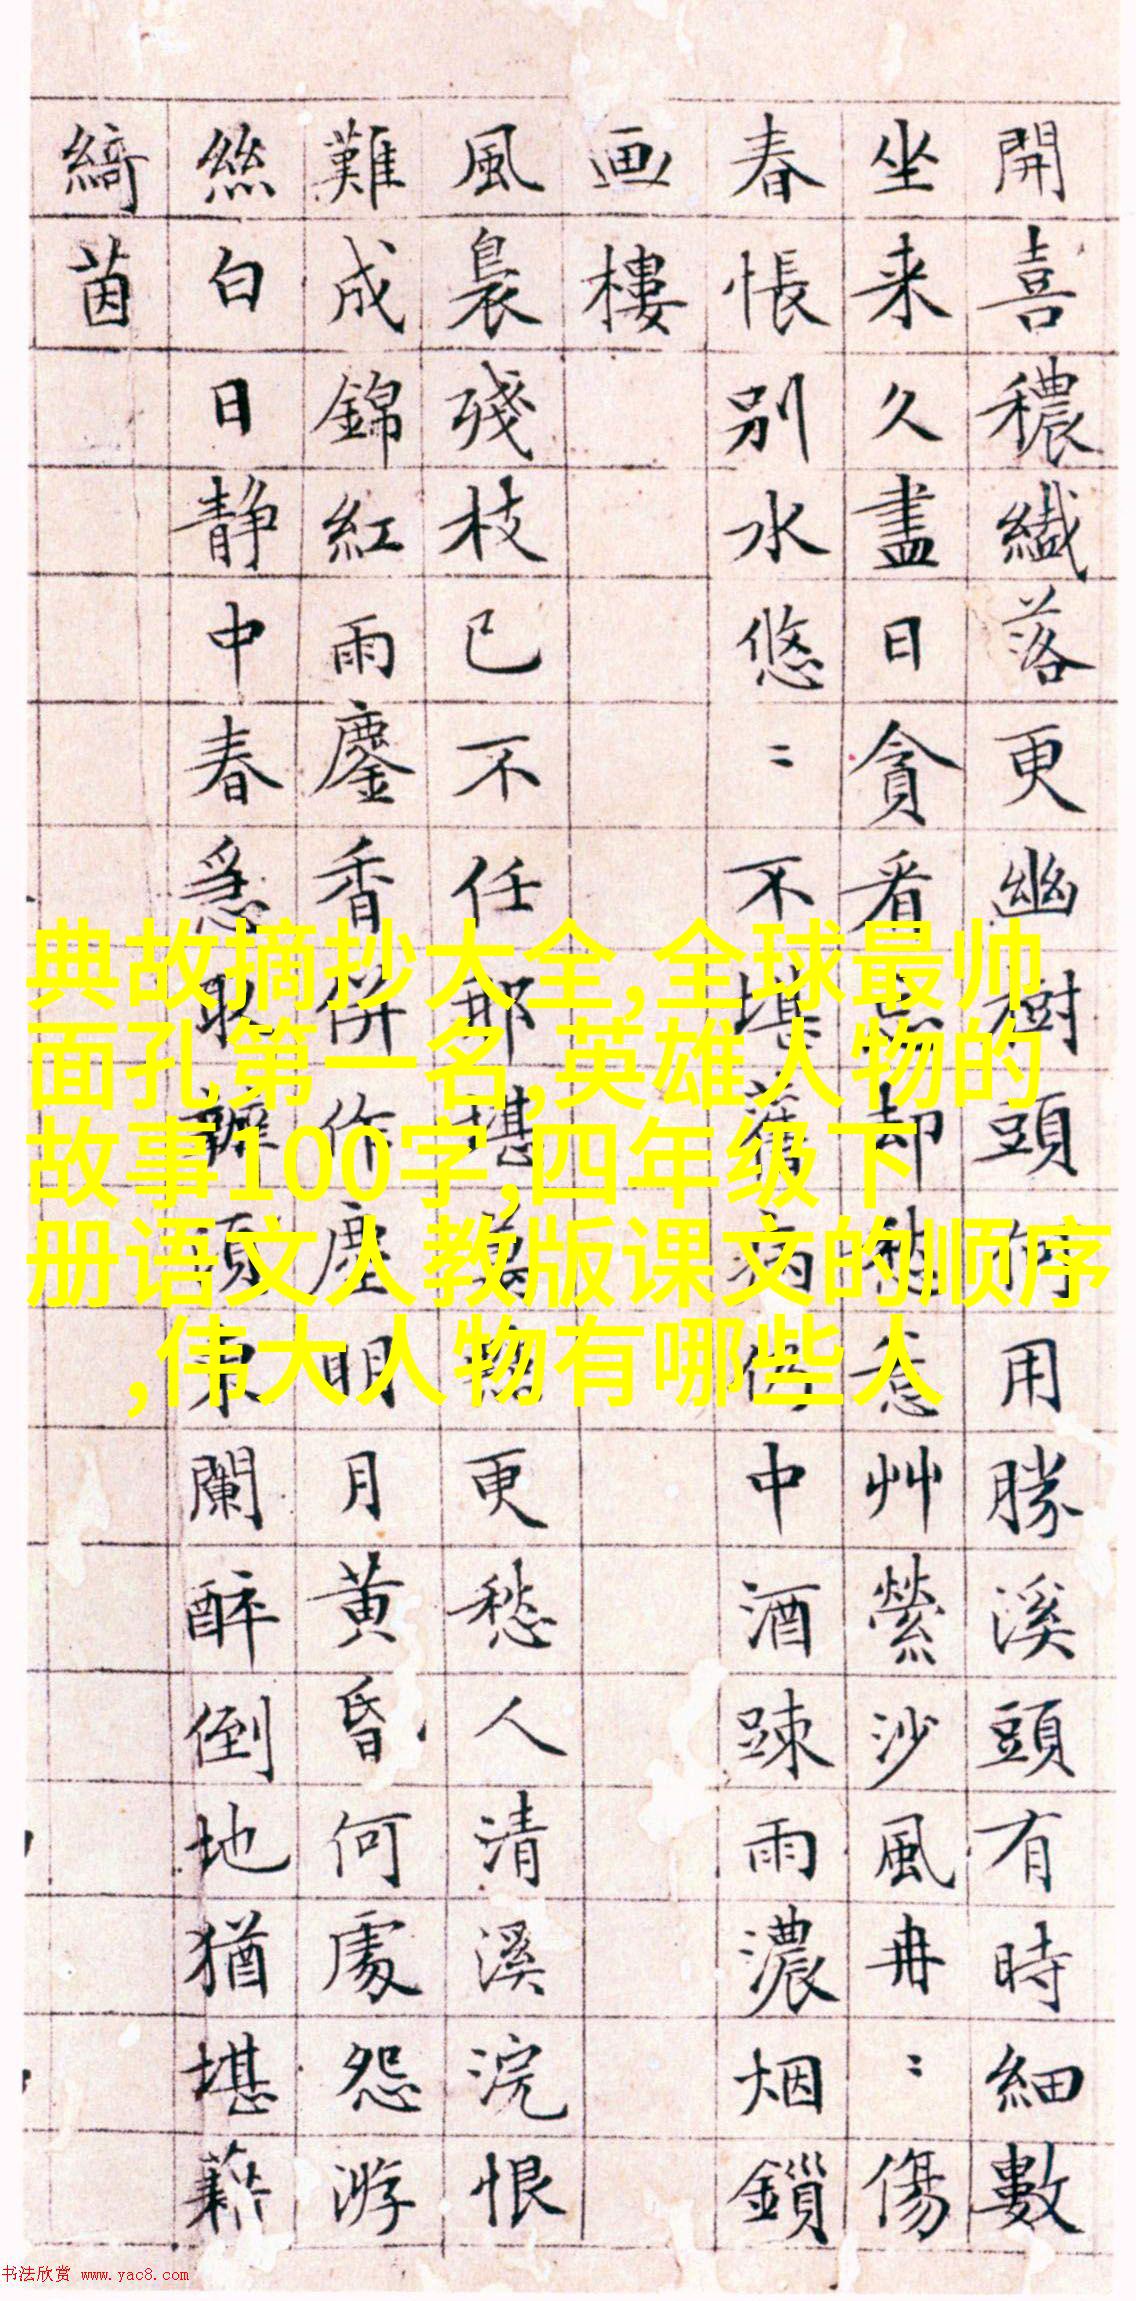 開喜穠纎落更幽樹頭何用勝溪頭有時細數
坐来久盡日貪看忘却愁意艸縈沙風冉〻傷
春悵别水悠〻不堪舊病仍中酒踈雨濃烟鎖
画樓
風裊殘枝已不任那堪萬更愁人清溪浣恨
難成錦紅雨鏖香併作塵明月黄昏何處怨游
絲白日静中春急取東闌醉倒地猶堪藉
綺茵
典故摘抄大全,全球最帅
面孔第一名,英雄人物的
故事100字,四年级下
册语文人教版课文的顺序
,伟大人物有哪些人
书法欣赏 www.yac8.com